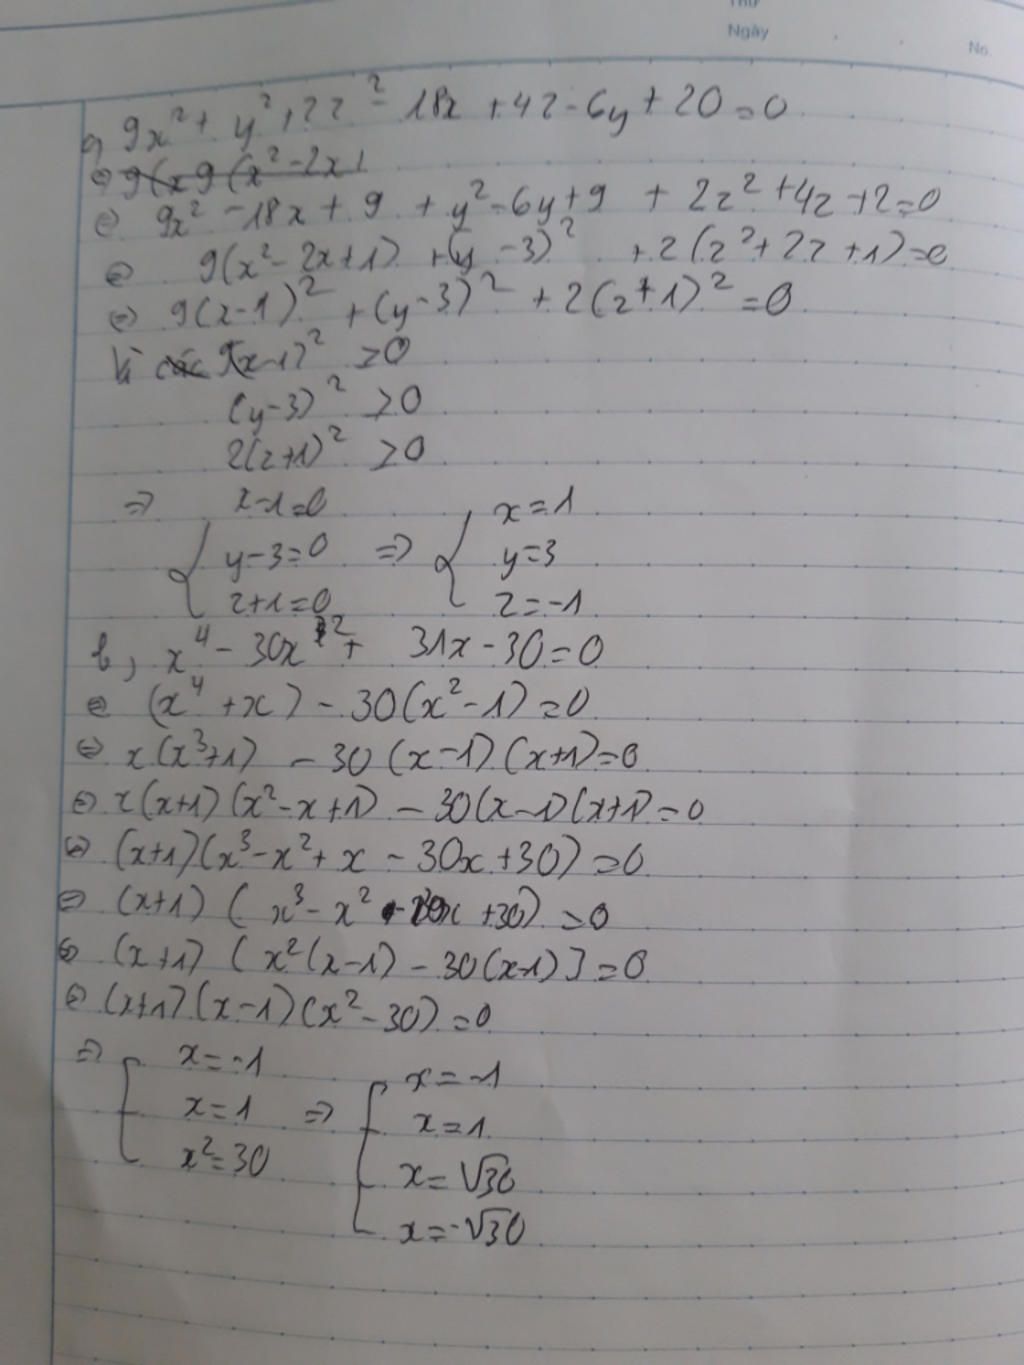 Thứ
Ngày
No.
a, 9x² + y² + 2z² - 18x + 4z - 6y + 20 = 0
⇔ 9(x 9(x² - 2x)
⇔ 9x² - 18x + 9 + y² - 6y + 9 + 2z² + 4z + 2 = 0
⇔ 9(x² - 2x + 1) + (y - 3)² + 2(z² + 2z + 1) = 0
⇔ 9(x-1)² + (y-3)² + 2(z+1)² = 0
Vì các 9(x-1)² ≥ 0
(y-3)² ≥ 0
2(z+1)² ≥ 0
⇒ { x-1=0 ⇒ { x=1
y-3=0 y=3
z+1=0 z=-1
b, x⁴ - 30x² + 31x - 30 = 0
⇔ (x⁴ + x) - 30(x² - 1) = 0
⇔ x(x³+1) - 30(x-1)(x+1) = 0
⇔ x(x+1)(x² - x + 1) - 30(x-1)(x+1) = 0
⇔ (x+1)(x³ - x² + x - 30x + 30) = 0
⇔ (x+1)(x³ - x² - 30x + 30) = 0
⇔ (x+1)[x²(x-1) - 30(x-1)] = 0
⇔ (x+1)(x-1)(x² - 30) = 0
⇒ [ x=-1 ⇒ [ x=-1
x=1 x=1
x²=30 x=√30
x=-√30